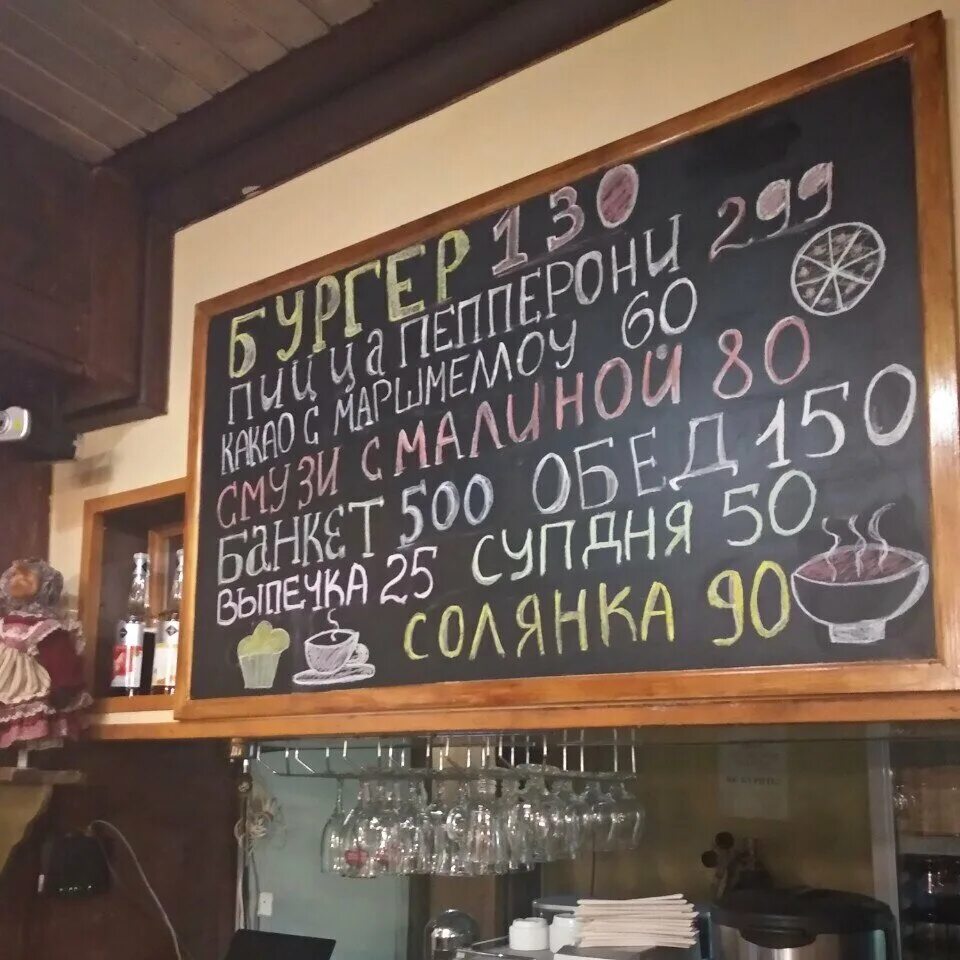 БУРГЕР 130
ПИЦЦА ПЕППЕРОНИ 299
КАКАО С МАРШМЕЛЛОУ 60
СМУЗИ С МАЛИНОЙ 80
БАНКЕТ 500 ОБЕД 150
ВЫПЕЧКА 25 СУП ДНЯ 50
СОЛЯНКА 90